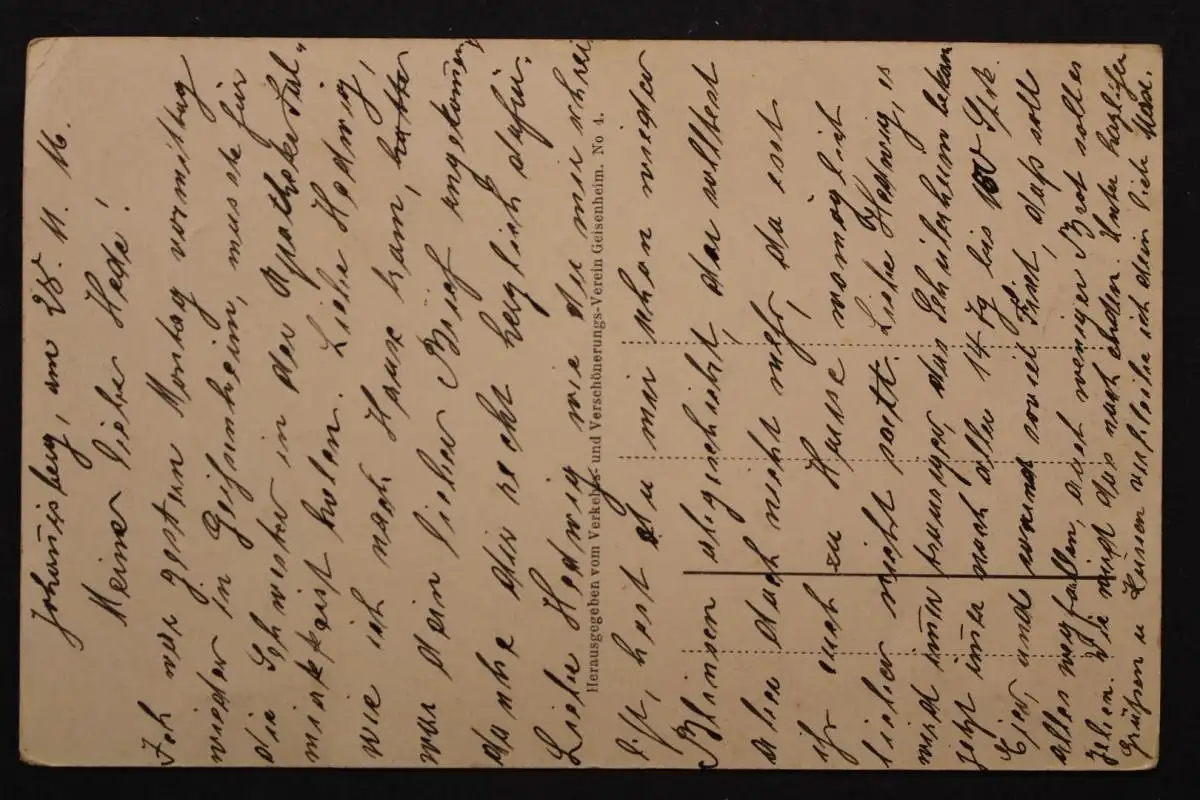 Johannisberg, am 28. 11. 16.
Meine liebe Hede!
Ich war gestern Montag vormittag
wieder in Geisenheim, musste für
die Schwester in der Apotheke „Sal
miakgeist holen. Liebe Hedwig,
wie ich nach Hause kam, hatte
war dein lieber Brief angekommen,
danke dir recht herzlich dafür.
Liebe Hedwig wie du mir schrei
bst, hast du mir schon wieder
Blumen abgeschickt, das solltest
aber doch nicht mehr, da ist
ihr euch zu Hause womöglich
lieber nicht satt. Liebe Hedwig, es
wird immer trauriger, das Schülerheim bekam
jetzt immer nach allen 14 Tg bis 100 Stck.
Eier, und soviel Brot, daß soll
alles wegfallen, auch weniger Brot soll es
geben. Wie wird das noch enden. Unter herzlichen
Grüßen u Küssen verbleibe ich dein lieb
Herausgegeben vom Verkehrs- und Verschönerungs-Verein Geisenheim. No 4.